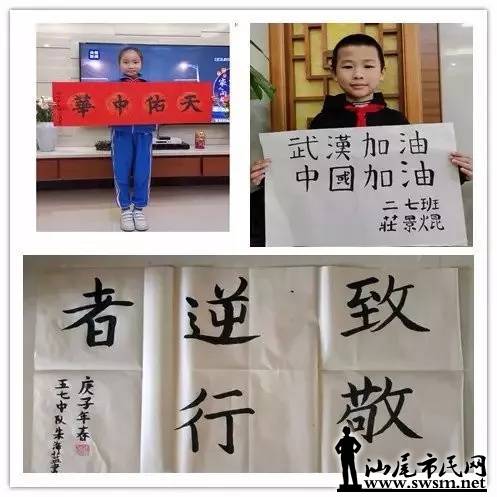 天佑中華
武漢加油
中國加油
二七班
莊景焜
致敬
逆行
者
庚子年春
五七中队朱海
汕尾市民网
www.swsm.net